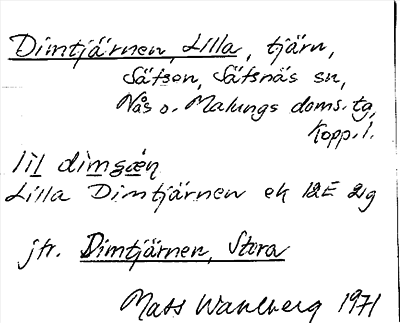 Dimtjärnen, Lilla, tjärn,
Säfsen, Säfsnäs sn,
Nås o. Malungs doms. tg,
Kopp. l.
lil dimʂæn
Lilla Dimtjärnen ek 12E 2g
jfr. Dimtjärnen, Stora
Mats Wahlberg 1971